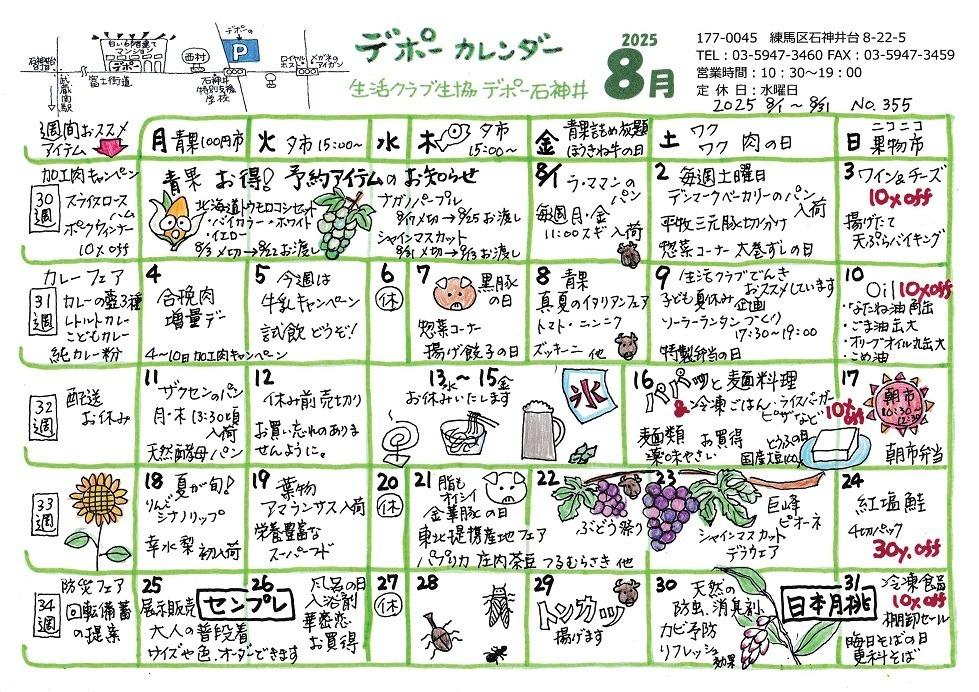 デポー カレンダー
2025
8月
生活クラブ生協 デポー石神井
177-0045 練馬区石神井台8-22-5
TEL：03-5947-3460 FAX：03-5947-3459
営業時間：10：30～19：00
定休日：水曜日
2025 8/1～8/31 No.355
白い6階建て
マンション
デポー
デポーの
P
西村
富士街道
石神井
特別支援
学校
ロイヤル
ホスト
メガネの
アイガン
武蔵関駅
週間おススメ
アイテム
月 青果100円市
火 夕市 15:00～
水
木 夕市
15:00～
金 青果詰め放題
ほうきね牛の日
土 ワク
ワク 肉の日
日 ニコニコ
果物市
30週
加工肉キャンペーン
スライスロース
ハム
ポークウィンナー
10%off
青果 お得! 予約アイテムのお知らせ
北海道トウモロコシセット
・バイカラー・ホワイト
・イエロー
8/3〆切→8/22お渡し
ナガノパープル
8/17〆切→9/25お渡し
シャインマスカット
8/31〆切→9/13お渡し
8/1 ラ・ママンの
パン
毎週月・金
11:00スギ 入荷
2 毎週土曜日
デンマークベーカリーのパン
入荷
平牧三元豚切分け
惣菜コーナー 太巻ずしの日
3 ワイン&チーズ
10%off
揚げたて
天ぷらバイキング
31週
カレーフェア
カレーの壺3種
レトルトカレー
こどもカレー
純カレー粉
4
合挽肉
増量デー
4～10日加工肉キャンペーン
5 今週は
牛乳キャンペーン
試飲どうぞ!
6
休
7 黒豚
の日
惣菜コーナー
揚げ餃子の日
8 青果
真夏のイタリアンフェア
トマト・ニンニク
ズッキーニ 他
9 生活クラブでんき
おススメしています
子ども夏休み
企画
ソーラーランタンづくり
17:30～19:00
特製弁当の日
10
Oil 10%off
・なたね油角缶
・ごま油缶大
・オリーブオイル丸缶大
・こめ油
32週
配送
お休み
11
ザクセンのパン
月・木 13:30頃
入荷
天然酵母パン
12
休み前売切り
お買い忘れのありま
せんように。
13水～15金
お休みいたします
氷
16 パパッと麺料理
&冷凍ごはん・ライスバーガー
ピザなど 10%off
麺類 お買得
薬味やさい とうふの日
国産大豆100%
17
朝市
10:30～
12:30
朝市弁当
33週
18 夏が旬!
りんご
シナノリップ
幸水梨 初入荷
19 葉物
アマランサス入荷
栄養豊富な
スーパーフード
20
休
21 脂も
オイシイ
金華豚の日
東北提携産地フェア
パプリカ 庄内茶豆 つるむらさき 他
22
ぶどう祭り
23
巨峰
ピオーネ
シャインマスカット
デラウェア
24
紅塩鮭
4切パック
30y.off
34週
防災フェア
回転備蓄
の提案
25
展示販売
センプレ
大人の普段着
サイズや色、オーダーできます
26 風呂の日
入浴剤
華密恋
お買得
27
休
28
29
トンカツ
揚げます
30 天然の
防虫、消臭剤
カビ予防
リフレッシュ
効果
日本月桃
31 冷凍食品
10%off
棚卸セール
晦日そばの日
更科そば